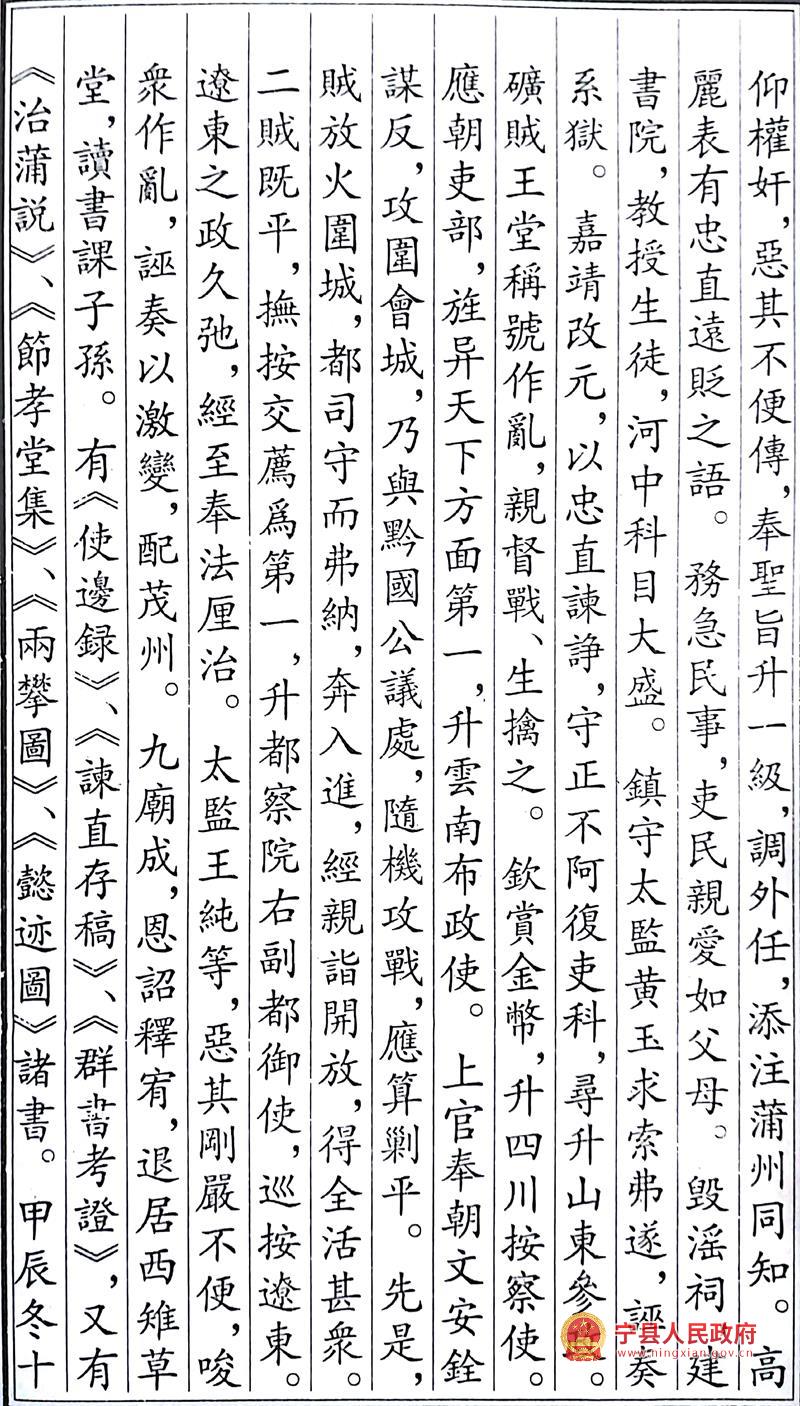 仰權奸，惡其不便傳，奉聖旨升一級，調外任，添注蒲州同知。高
麗表有忠直遠貶之語。務急民事，吏民親愛如父母。毁滛祠，建
書院，教授生徒，河中科目大盛。鎮守太監黄玉求索弗遂，誣奏
系獄。嘉靖改元，以忠直諫諍，守正不阿復吏科，尋升山東參。
礦賊王堂稱號作亂，親督戰、生擒之。欽賞金幣，升四川按察使。
應朝吏部，旌异天下方面第一，升雲南布政使。上官奉朝文安銓
謀反，攻圍會城，乃與黔國公議處，隨機攻戰，應算剿平。先是，
賊放火圍城，都司守而弗納，奔入進，經親詣開放，得全活甚衆。
二賊既平，撫按交薦爲第一，升都察院右副都御使，巡按遼東。
遼東之政久弛，經至奉法厘治。太監王純等，惡其剛嚴不便，唆
衆作亂，誣奏以激變，配茂州。九廟成，恩詔釋宥，退居西雉草
堂，讀書課子孫。有《使邊録》、《諫直存稿》、《群書考證》，又有
《治蒲説》、《節孝堂集》、《兩攀圖》、《懿迹圖》諸書。甲辰冬十
宁县人民政府
www.ningxian.gov.cn